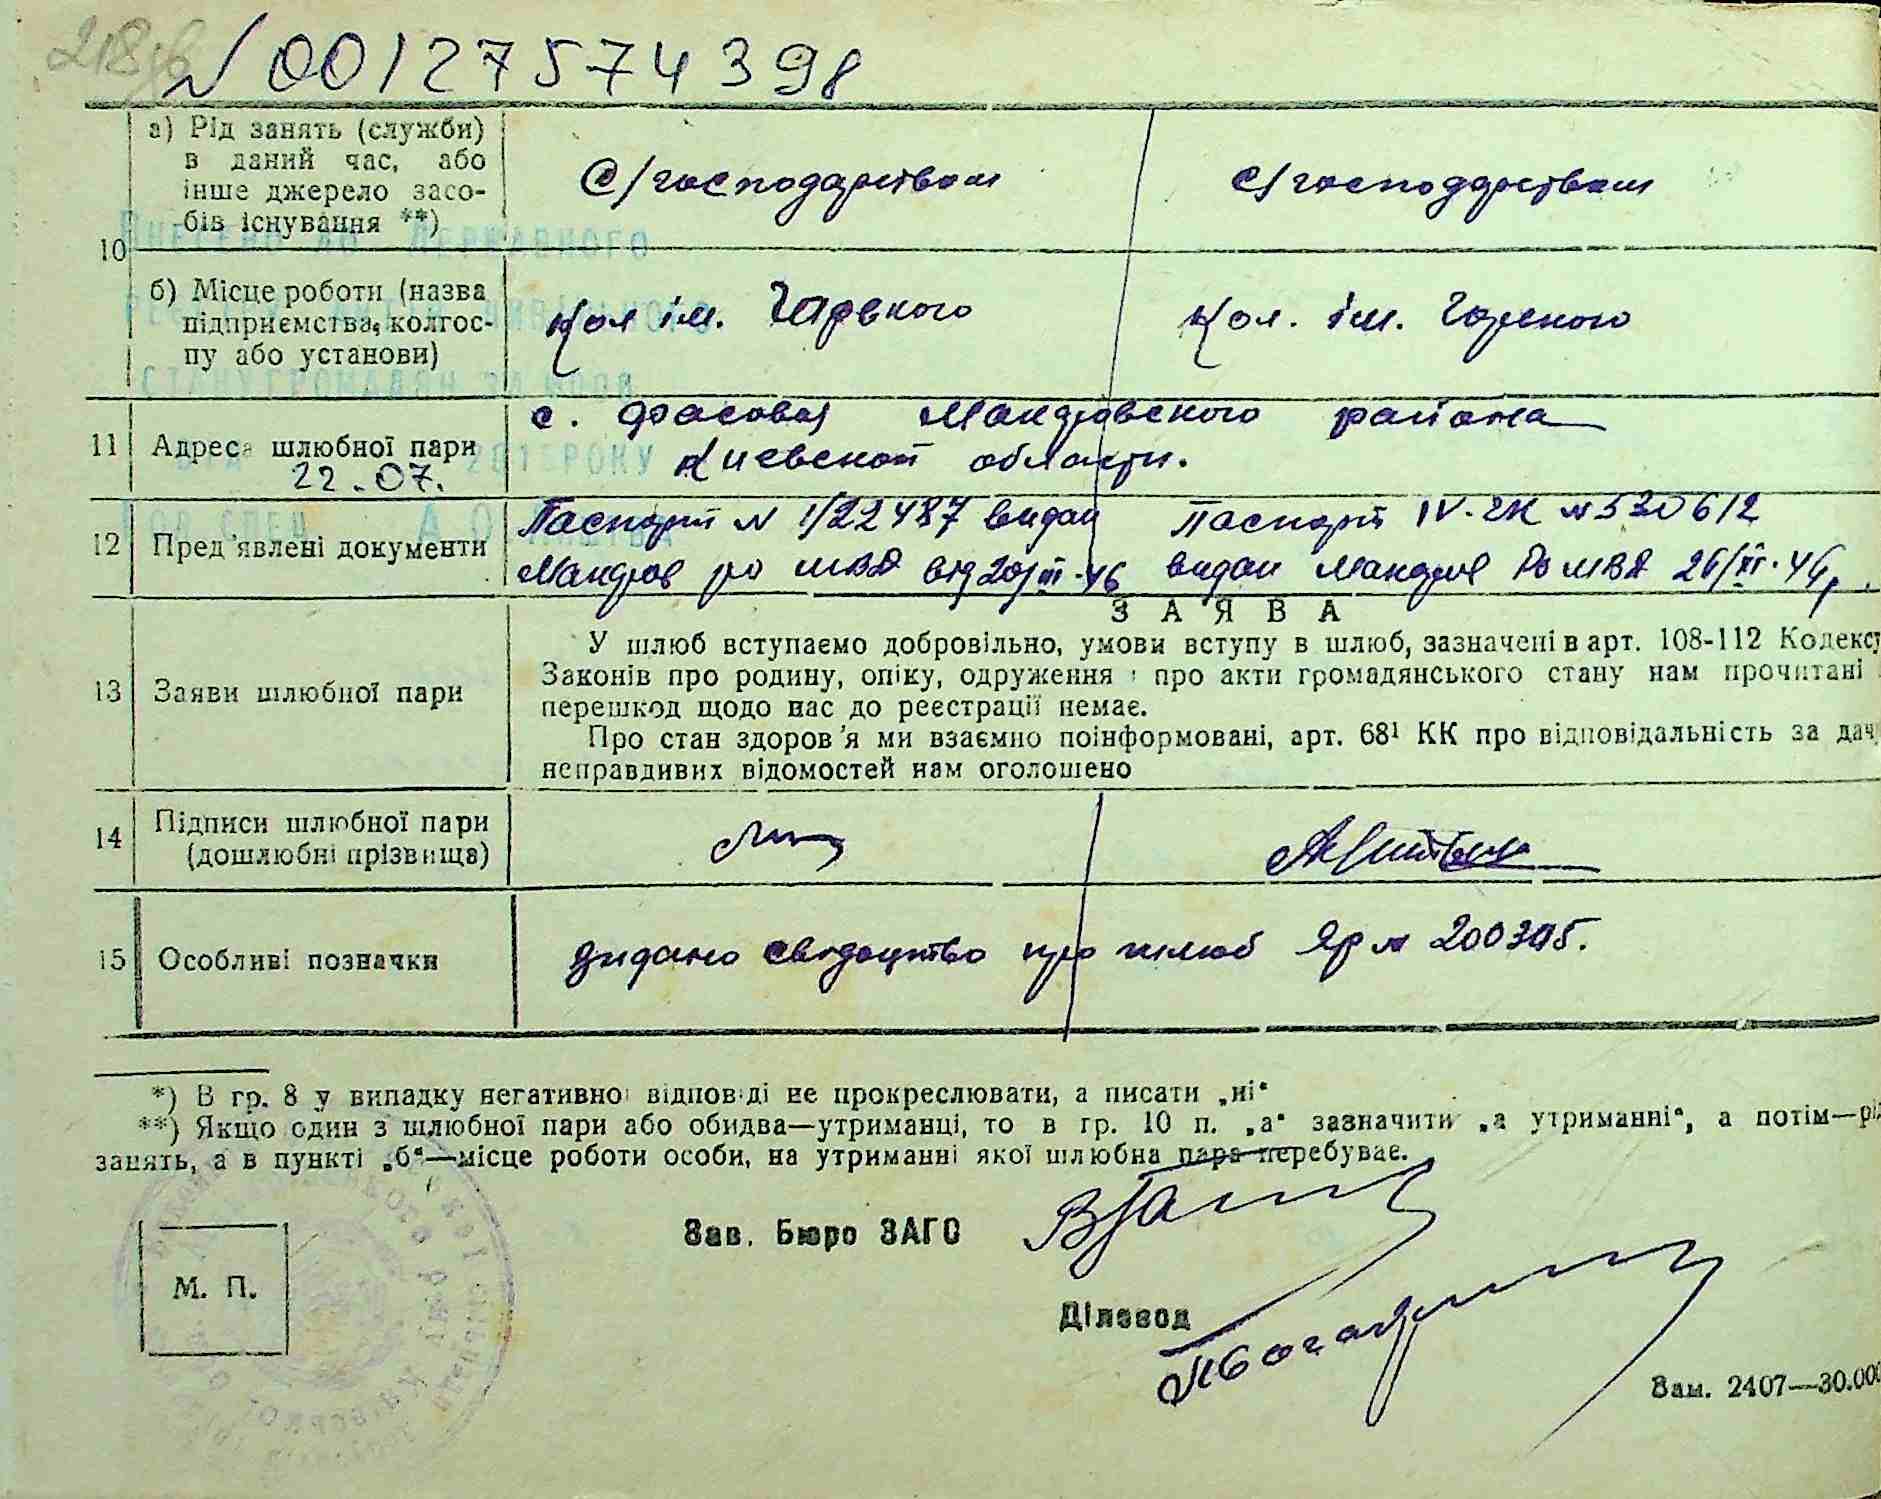 218зв
№ 00127574398
а) Рід занять (служби) в даний час, або інше джерело засобів існування **)
С/господарством
С/господарством
10
б) Місце роботи (назва підприємства, колгоспу або установи)
Кол ім. Горького
Кол. ім. Горького
ВНЕСЕНО ДО ДЕРЖАВНОГО
СТАНУ ГРОМАДЯН ЗА
2015 РОКУ
11
Адреса шлюбної пари
22.07.
с. Фасовая Макаровского района
Киевской области.
12
Пред'явлені документи
Паспорт N 1/22487 видан
від 20/III-46
Паспорт IV-ЧК № 530612
видан МВД 26/XI-46р.
ЗАЯВА
13
Заяви шлюбної пари
У шлюб вступаємо добровільно, умови вступу в шлюб, зазначені в арт. 108-112 Кодексу
Законів про родину, опіку, одруження і про акти громадянського стану нам прочитані
перешкод щодо нас до реєстрації немає.
Про стан здоров'я ми взаємно поінформовані, арт. 68¹ КК про відповідальність за дачу
неправдивих відомостей нам оголошено
14
Підписи шлюбної пари
(дошлюбні прізвища)
15
Особливі позначки
Видано свідоцтво про шлюб ЯР №
*) В гр. 8 у випадку негативної відповіді не прокреслювати, а писати „ні“
**) Якщо один з шлюбної пари або обидва—утриманці, то в гр. 10 п. „а“ зазначити „а утриманні“, а потім—рід
занять, а в пункті „б“—місце роботи особи, на утриманні якої шлюбна пара перебуває.
Зав. Бюро ЗАГС
М. П.
Діловод
Зам. 2407—30.000